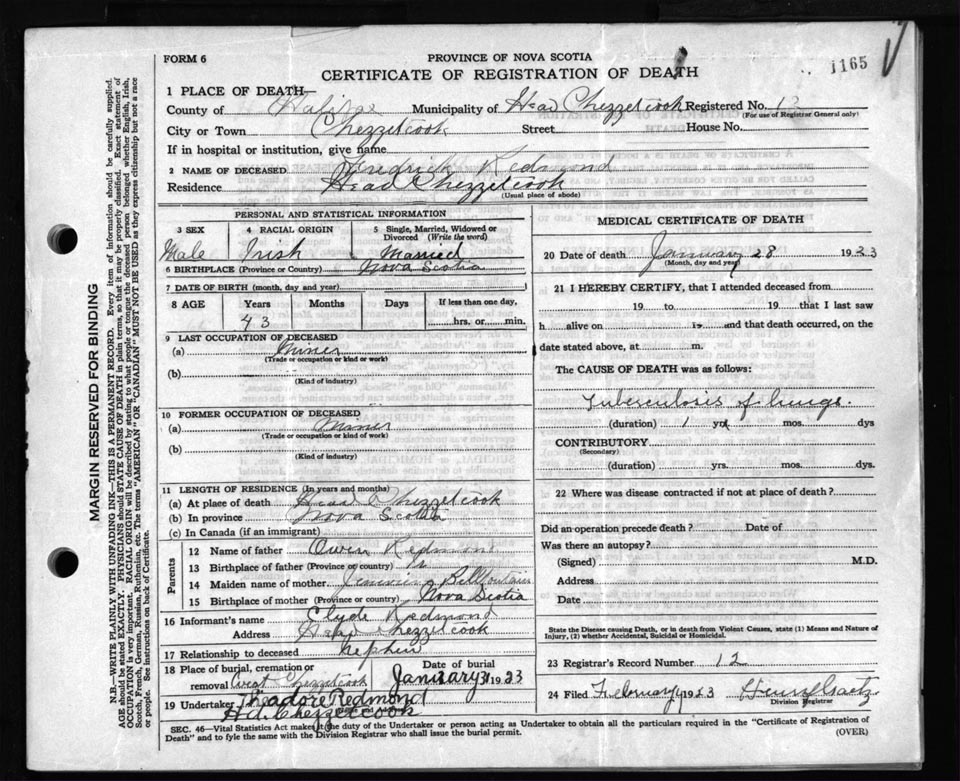 FORM 6
PROVINCE OF NOVA SCOTIA
CERTIFICATE OF REGISTRATION OF DEATH
1165
1 PLACE OF DEATH—
County of Halifax Municipality of Head Chezzetcook Registered No. 12
(For use of Registrar General only)
City or Town Chezzetcook Street House No.
If in hospital or institution, give name
2 NAME OF DECEASED Fredrick Redmond
Residence Head Chezzetcook
(Usual place of abode)
PERSONAL AND STATISTICAL INFORMATION
3 SEX 4 RACIAL ORIGIN 5 Single, Married, Widowed or Divorced (Write the word)
Male Irish Married
6 BIRTHPLACE (Province or Country) Nova Scotia
7 DATE OF BIRTH (month, day and year)
8 AGE Years Months Days If less than one day,
43 hrs. or min.
9 LAST OCCUPATION OF DECEASED
(a) Miner
(Trade or occupation or kind or work)
(b)
(Kind of industry)
10 FORMER OCCUPATION OF DECEASED
(a) Miner
(Trade or occupation or kind of work)
(b)
(Kind of industry)
11 LENGTH OF RESIDENCE (In years and months)
(a) At place of death Head Chezzetcook
(b) In province Nova Scotia
(c) In Canada (if an immigrant)
Parents
12 Name of father Owen Redmond
13 Birthplace of father (Province or country)
14 Maiden name of mother
15 Birthplace of mother (Province or country) Nova Scotia
16 Informant's name Clyde Redmond
Address Head Chezzetcook
17 Relationship to deceased nephew
18 Place of burial, cremation or removal West Chezzetcook
Date of burial January 31 1923
19 Undertaker Theadore Redmond
Hd. Chezzetcook
MEDICAL CERTIFICATE OF DEATH
20 Date of death January 28 1923
(Month, day and year)
21 I HEREBY CERTIFY, that I attended deceased from
19 to 19 that I last saw
h alive on 19 and that death occurred, on
date stated above, at m.
The CAUSE OF DEATH was as follows:
Tuberculosis of lungs.
(duration) 1 yrs mos. dys
CONTRIBUTORY
(Secondary)
(duration) yrs. mos. dys.
22 Where was disease contracted if not at place of death?
Did an operation precede death? Date of
Was there an autopsy?
(Signed) M.D.
Address
Date
State the Disease causing Death, or in death from Violent Causes, state (1) Means and Nature of Injury, (2) whether Accidental, Suicidal or Homicidal.
23 Registrar's Record Number 12
24 Filed February 1923
Division Registrar
SEC. 46—Vital Statistics Act makes it the duty of the Undertaker or person acting as Undertaker to obtain all the particulars required in the "Certificate of Registration of
Death" and to fyle the same with the Division Registrar who shall issue the burial permit.
(OVER)
MARGIN RESERVED FOR BINDING
N.B.—WRITE PLAINLY WITH UNFADING INK—THIS IS A PERMANENT RECORD. Every item of information should be carefully supplied.
AGE should be stated EXACTLY. PHYSICIANS should STATE CAUSE OF DEATH in plain terms, so that it may be properly classified. Exact statement of
OCCUPATION is very important. RACIAL ORIGIN will be described by stating to what people or tongue the deceased person belonged whether English, Irish,
Scotch, French, German, Russian, Ruthenian, etc. The terms "AMERICAN" OR "CANADIAN" MUST NOT BE USED as they express citizenship but not a race
or people. See instructions on back of Certificate.